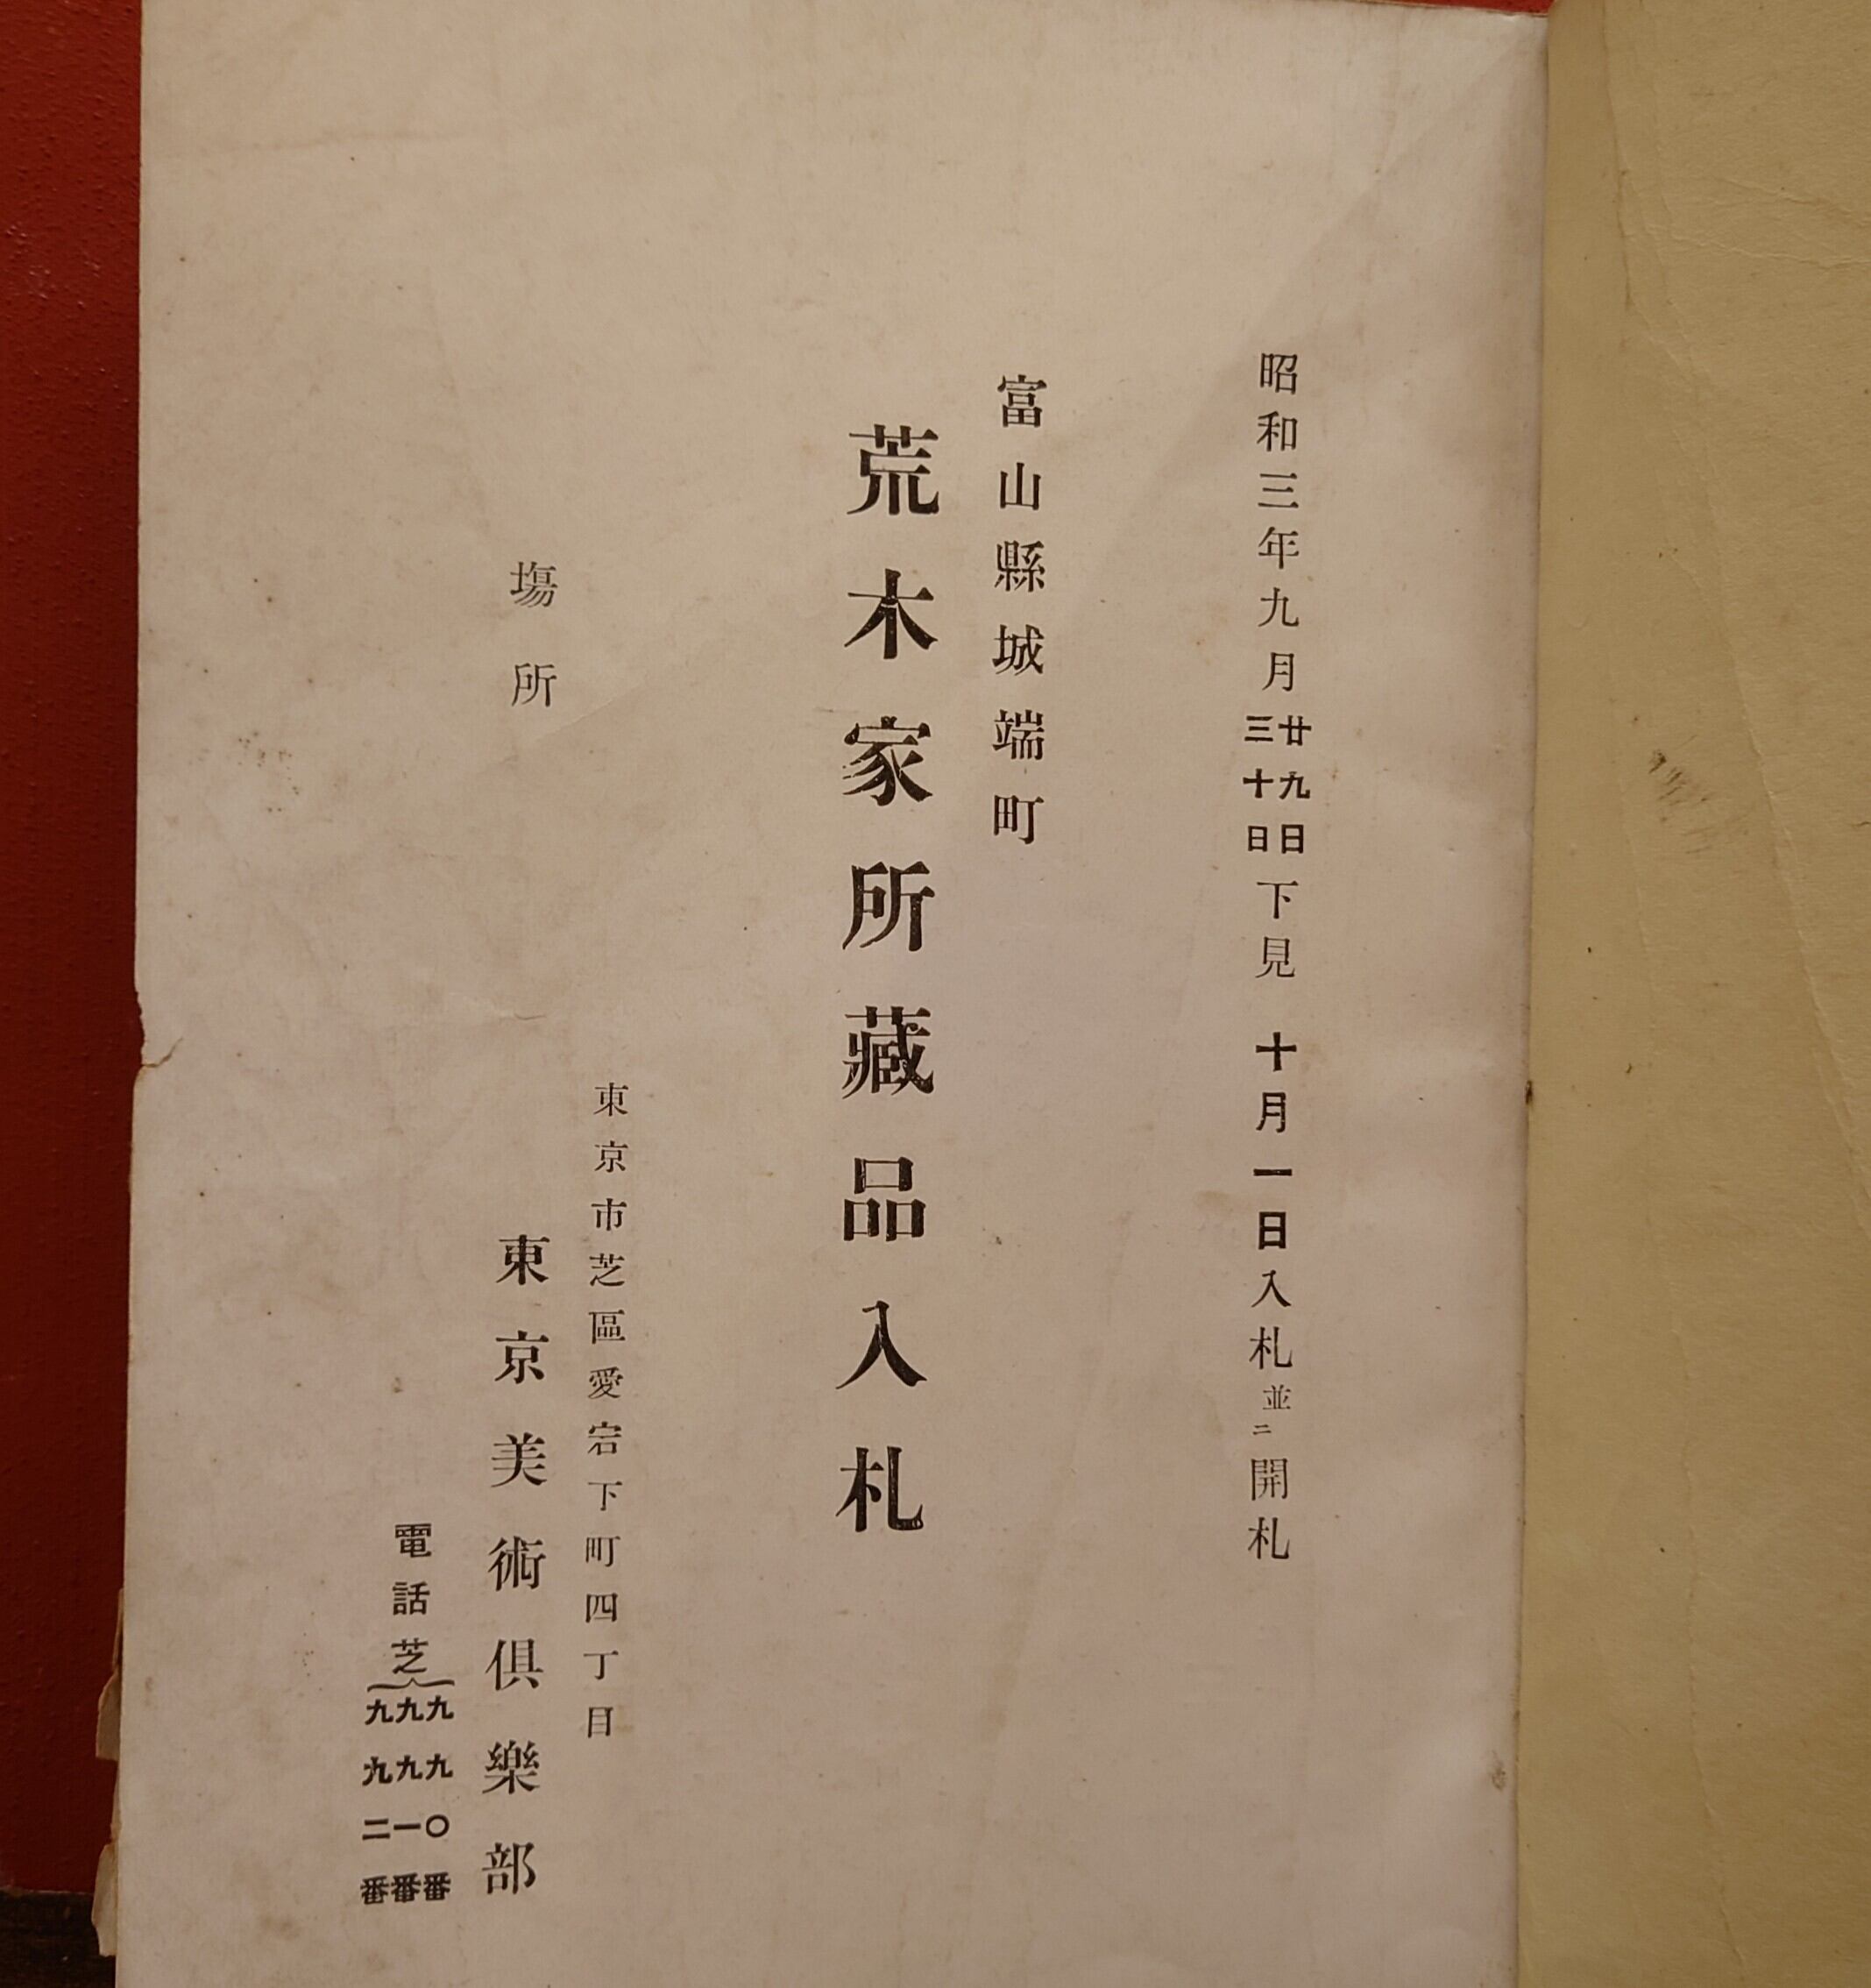 昭和三年九月廿九日三十日下見 十月一日入札並ニ開札
富山縣城端町
荒木家所藏品入札
塲所
東京市芝區愛宕下町四丁目
東京美術倶樂部
電話芝
九九〇番
九九一番
九九二番